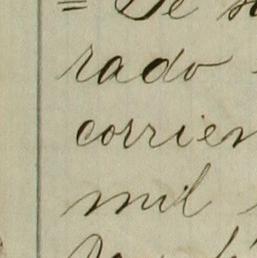 = De
rado
corrien
mil